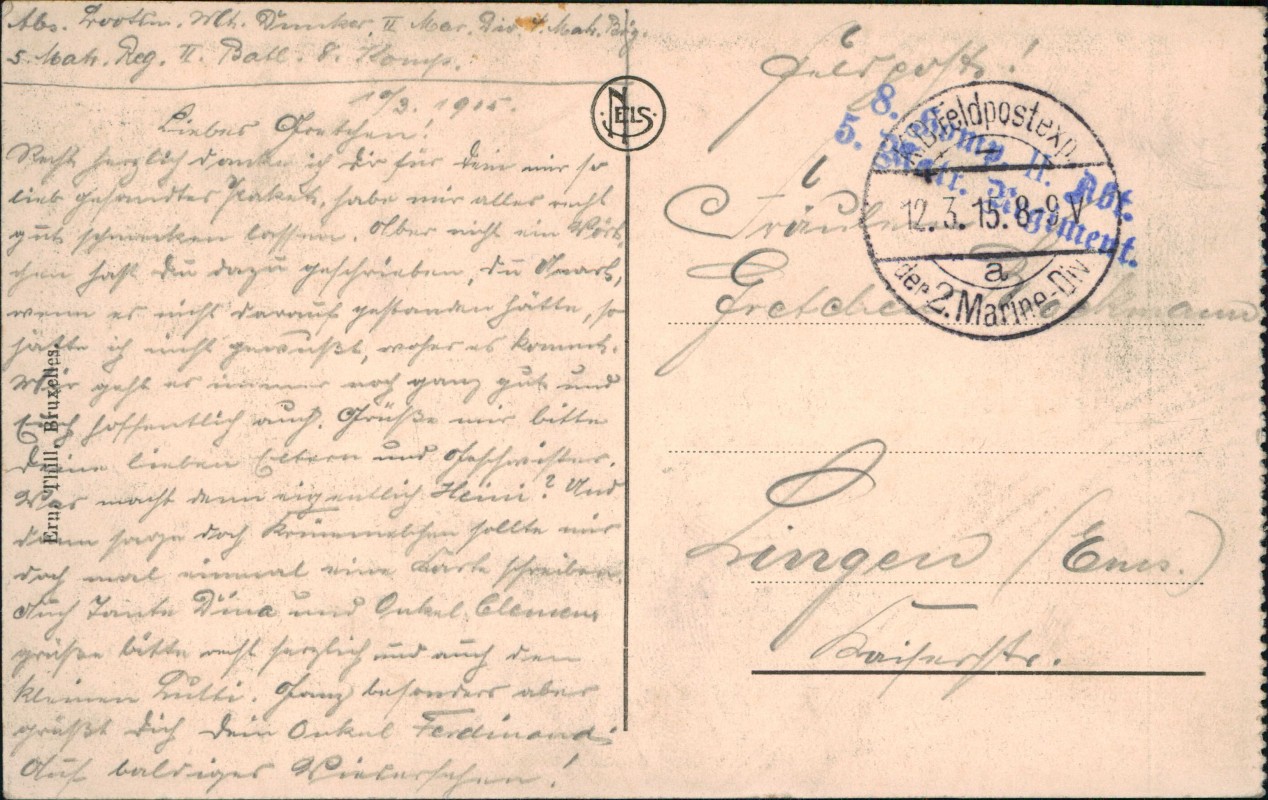 Abs. Bootsm. Mt. II Mar. Div. 4. Matr. Brig.
5. Matr. Reg. II. Batl. 8. Komp.
10/3. 1915.
Liebes Gretchen!
Recht herzlich danke ich Dir für dein mir so
lieb gesandtes Paket, habe mir alles recht
gut schmecken lassen. Aber nicht ein Wört-
chen hast du dazu geschrieben,
wenn es nicht darauf gestanden hätte, so
hätte ich nicht gewußt, woher es kommt.
Mir geht es immer noch ganz gut und
hoffentlich auch. Grüße mir bitte
deine lieben Eltern und Geschwister.
Was macht denn eigentlich Heini? Und
dann sage doch sollte mir
doch mal einmal eine Karte schreiben.
Auch Tante Dina und Onkel Clemens
grüße bitte recht herzlich und auch den
kleinen Lutti. Ganz besonders aber
grüßt Dich dein Onkel Ferdinand.
Auf baldiges Wiedersehen!
Ern. Thill, Bruxelles.
NELS
Feldpost!
8. Komp. II. Abt.
5. Matr. Regiment.
K.D. Feldpostexp.
12.3.15. 8-9 V
a
der 2. Marine-Div.
Fräulein
Gretchen
Lingen (Ems.)
Kaiserstr.